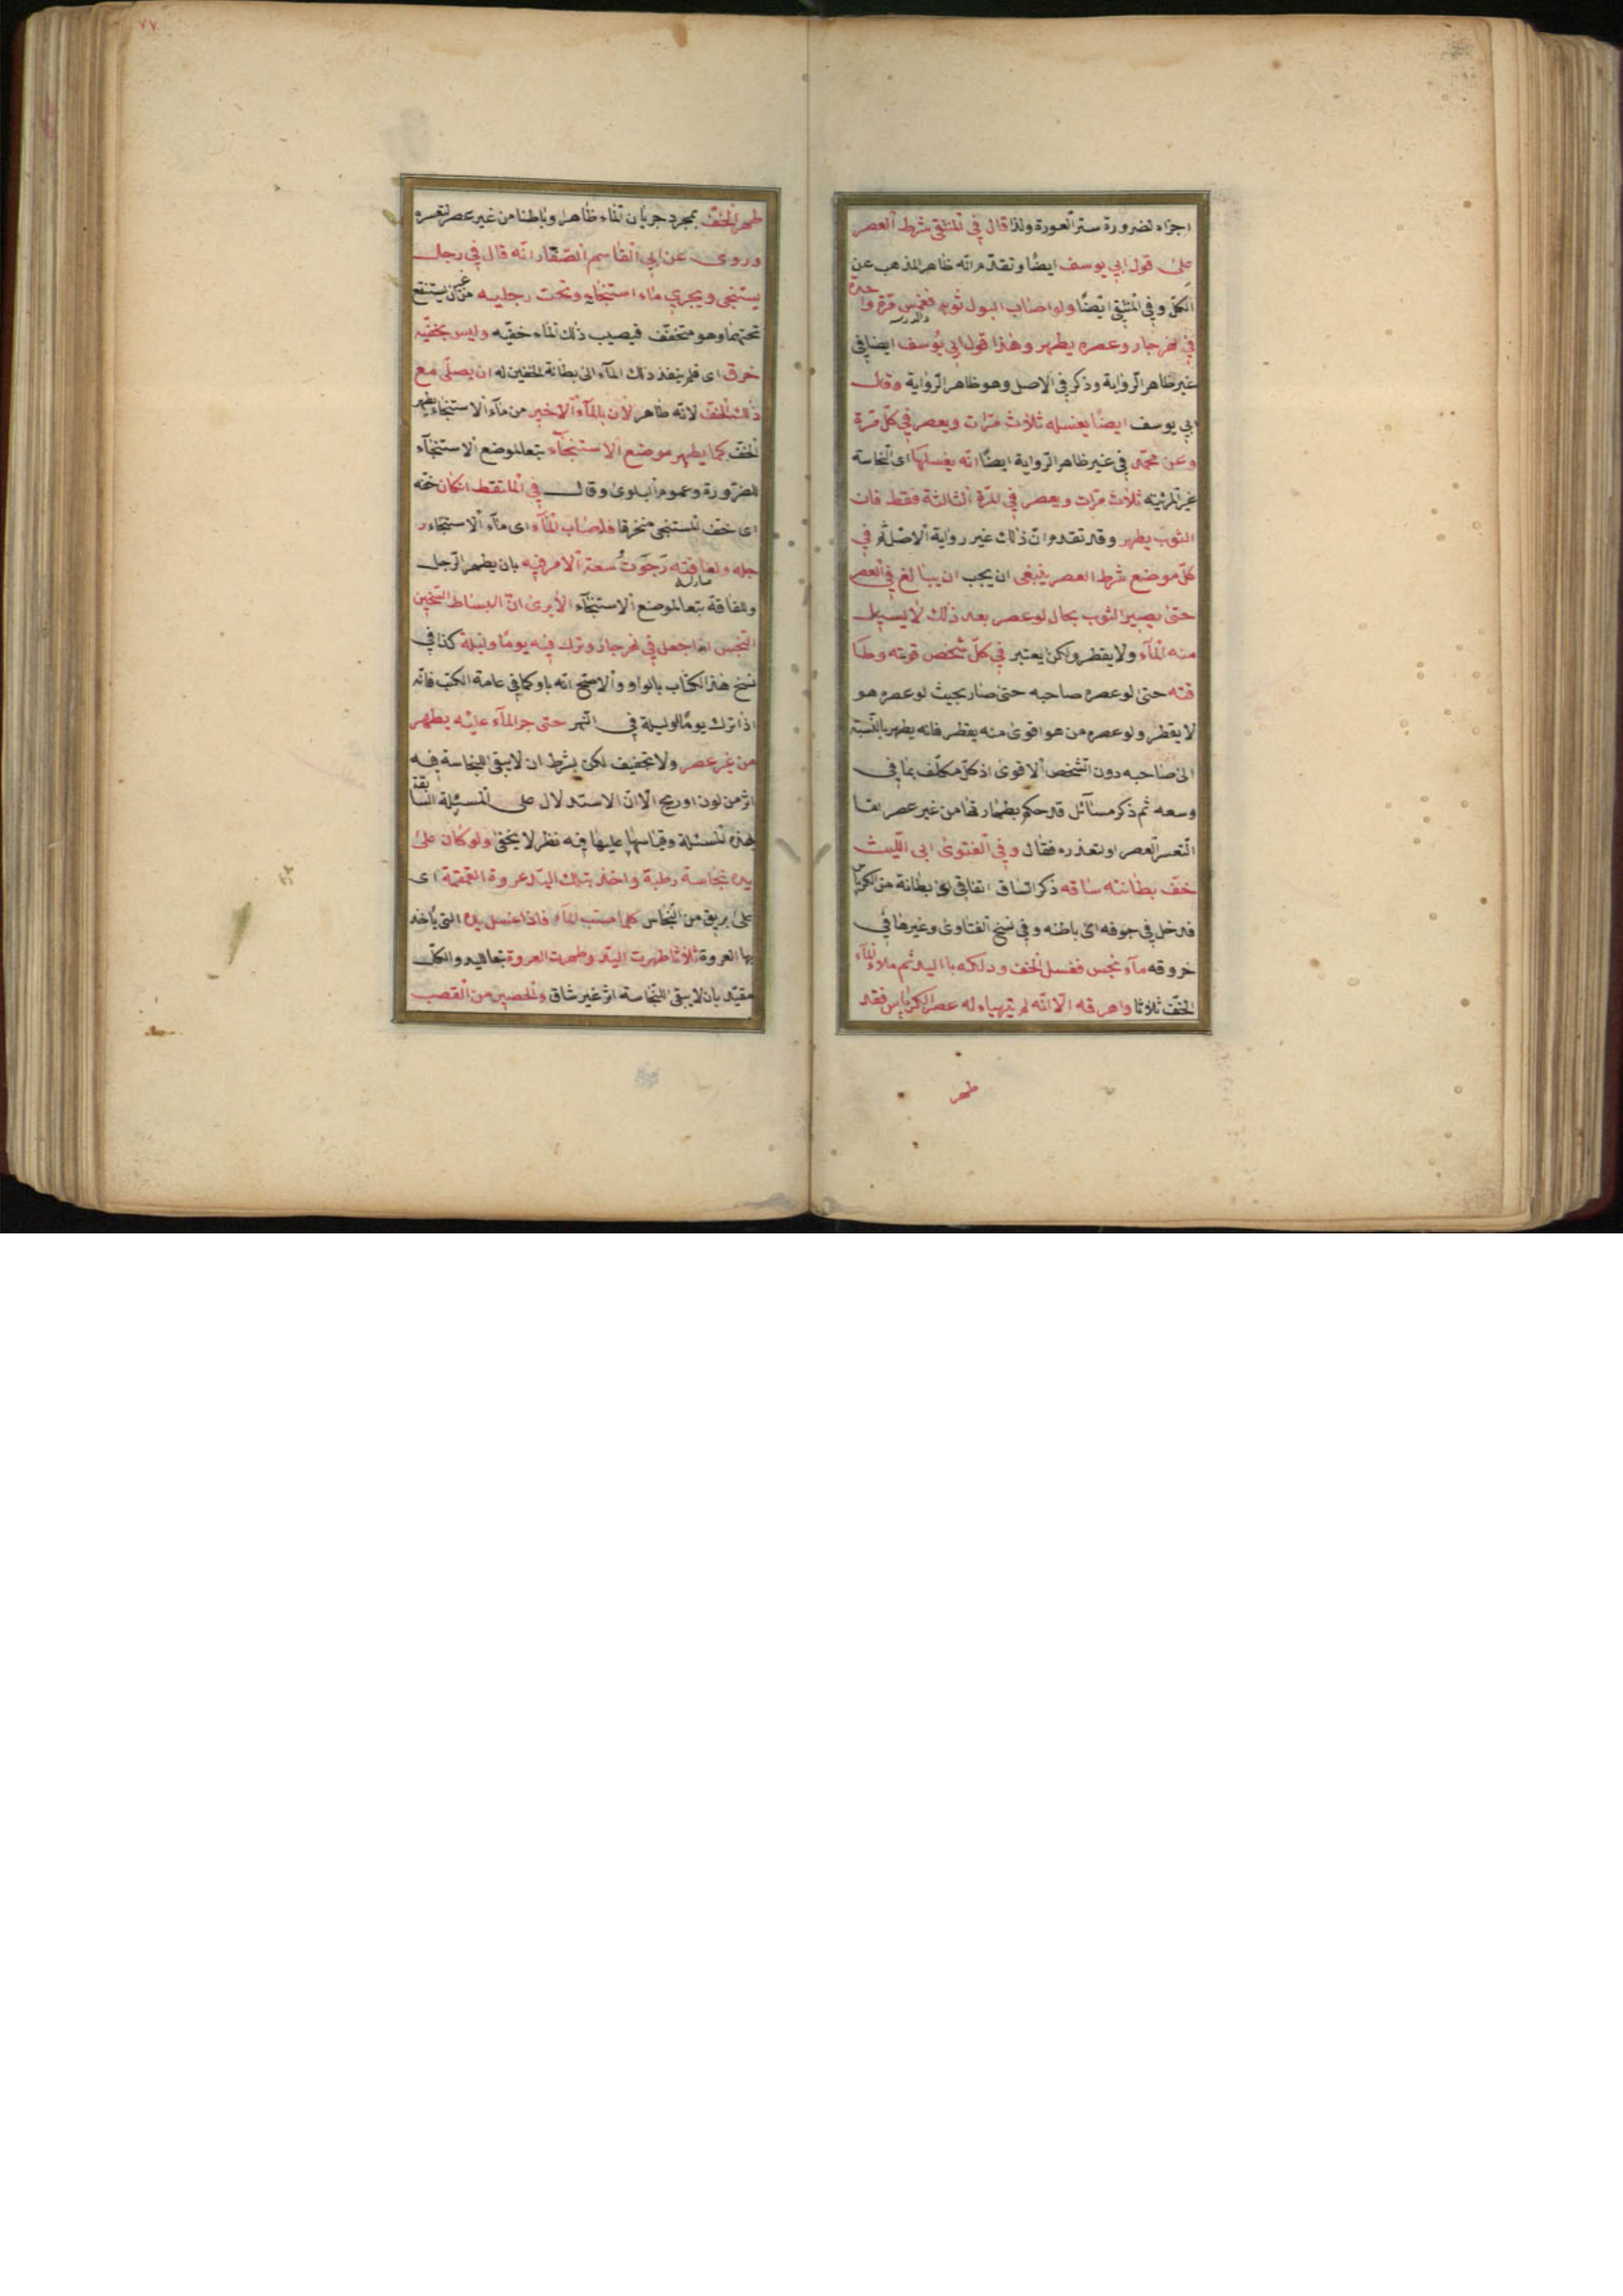 اجزاء لضرورة ستر العورة ولذا قال في المنتقى شرط العصر
على قول ابي يوسف ايضًا وتقدّم انّه ظاهر المذهب عن
الكلّ وفي المنتقى ايضًا ولو اصاب البول ثوبه فغمس مرّة واحدة
في نهر جار وعصره يطهر وهذا قول ابي يوسف ايضا في
غير ظاهر الرّواية وذكر في الاصل وهو ظاهر الرّواية وقال
ابي يوسف ايضًا يغسله ثلاث مرّات ويعصر في كلّ مرّة
وعن محمّد في غير ظاهر الرّواية ايضًا انّه يغسلها اى النّجاسة
غير المرئيّة ثلاث مرّات ويعصر في المرّة الثالثة فقط فان
الثوب يطهر وقد تقدم انّ ذلك غير رواية الاصل ثم في
كلّ موضع شرط العصر ينبغى ان يجب ان يبالغ في العصر
حتى يصير الثوب بحال لو عصر بعد ذلك لا يسيل
منه الماء ولا يقطر ولكن يعتبر في كلّ شخص قوته وطا
قته حتى لو عصره صاحبه حتى صار بحيث لو عصره هو
لا يقطر ولو عصره من هو اقوى منه يقطر فانه يطهر بالنّسبة
الى صاحبه دون الشخص الاقوى اذ كلّ مكلّف بما في
وسعه ثم ذكر مسائل قد حكم بطهارتها من غير عصر
التعسر العصر او تعذره فقال وفي الفتوى ابى اللّيث
خفّ بطانته ساقه ذكر الساق اتفاقي اى بطانة من الكرباس
فدخل في جوفه اى باطنه وفي نسخ الفتاوى وغيرها في
خروقه ماء نجس فغسل الخف ودلكه باليد ثم ملاء الماء
الخفّ ثلاثا واهرقه الّا انّه لم يتهياء له عصر الكرباس فقد
طهر
٧٧
طهر الخفّ بمجرد جريان الماء ظاهرا وباطنا من غير عصر لتعسره
وروى عن ابي القاسم الصّفّار انّه قال في رجل
يستنجى ويجري ماء استنجائه وتحت رجليه من غير ان يستنقع
تحتهما وهو متخفّف فيصيب ذلك الماء خفّيه وليس بخفّيه
خرق اى فلم ينفذ ذلك الماء الى بطانة الخفين له ان يصلّى مع
ذلك الخفّ لانّه طاهر لان بالماء الاخير من ماء الاستنجاء يطهر
الخفّ كما يطهر موضع الاستنجاء تبعا لموضع الاستنجاء
للضرورة وعموم البلوى وقال في الملتقط ان كان خفّه
اى خفّ المستنجى منخرقا فاصاب الماء اى ماء الاستنجاء ر
جله ولفافته رجوت سعة الامر فيه بان يطهر الرّجل
واللفافة تبعا لموضع الاستنجاء الا يرى انّ البساط الثّخين
النّجس اذا جعل في نهر جار وترك فيه يومًا وليلة كذا في
نسخ هذا الكتاب بالواو والاصح انّه باو كما في عامة الكتب فانّه
اذا ترك يومًا او ليلة في النّهر حتى جر الماء عليه يطهر
من غير عصر ولا تجفيف لكن بشرط ان لا يبقى للنجاسة فيه
اثر من لون او ريح الّا انّ الاستدلال على المسئلة السّابقة
بهذه المسئلة وقياسها عليها فيه نظر لا يخفى ولو كان على
يده نجاسة رطبة واخذ بتلك اليد عروة القمقمة اى
على ابريق من النّحاس كلما صبّ الماء فاذا غسل يده التى ياخذ
بها العروة ثلاثا طهرت اليد وطهرت العروة تبعا لليد والكلّ
مقيّد بان لا يبقى للنّجاسة اثر غير شاق والحصير من القصب